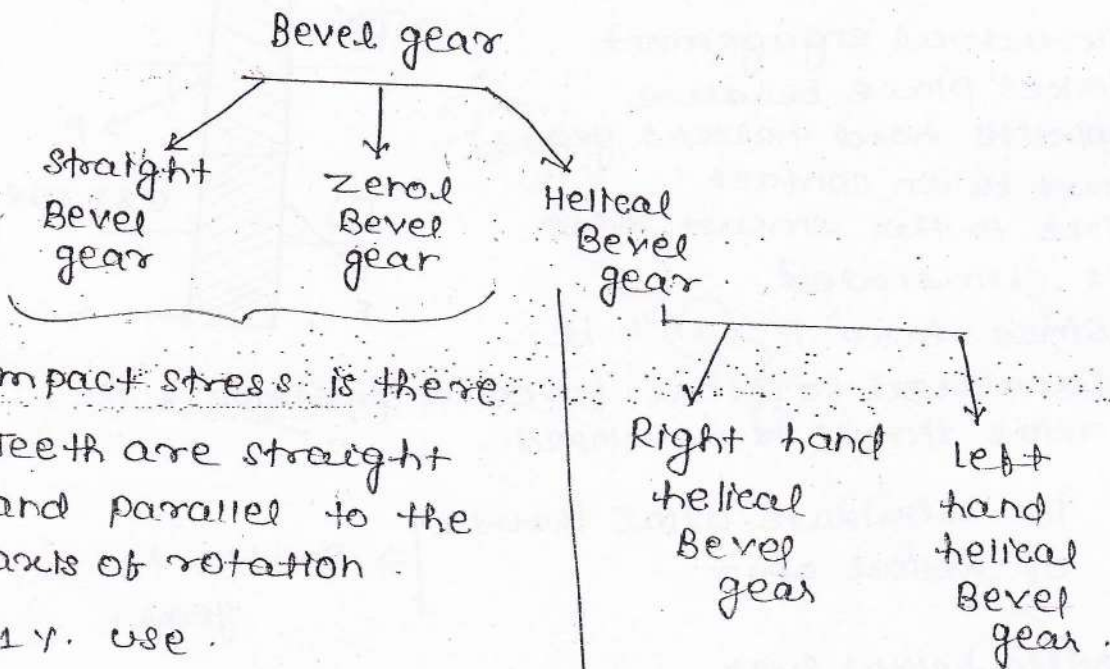 Bevel gear
straight
Bevel
gear
Zerol
Bevel
gear
Helical
Bevel
gear
mpact stress is there
Teeth are straight
and parallel to the
axis of rotation.
1 y. use.
Right hand
helical
Bevel
gear
Left
hand
helical
Bevel
gear.